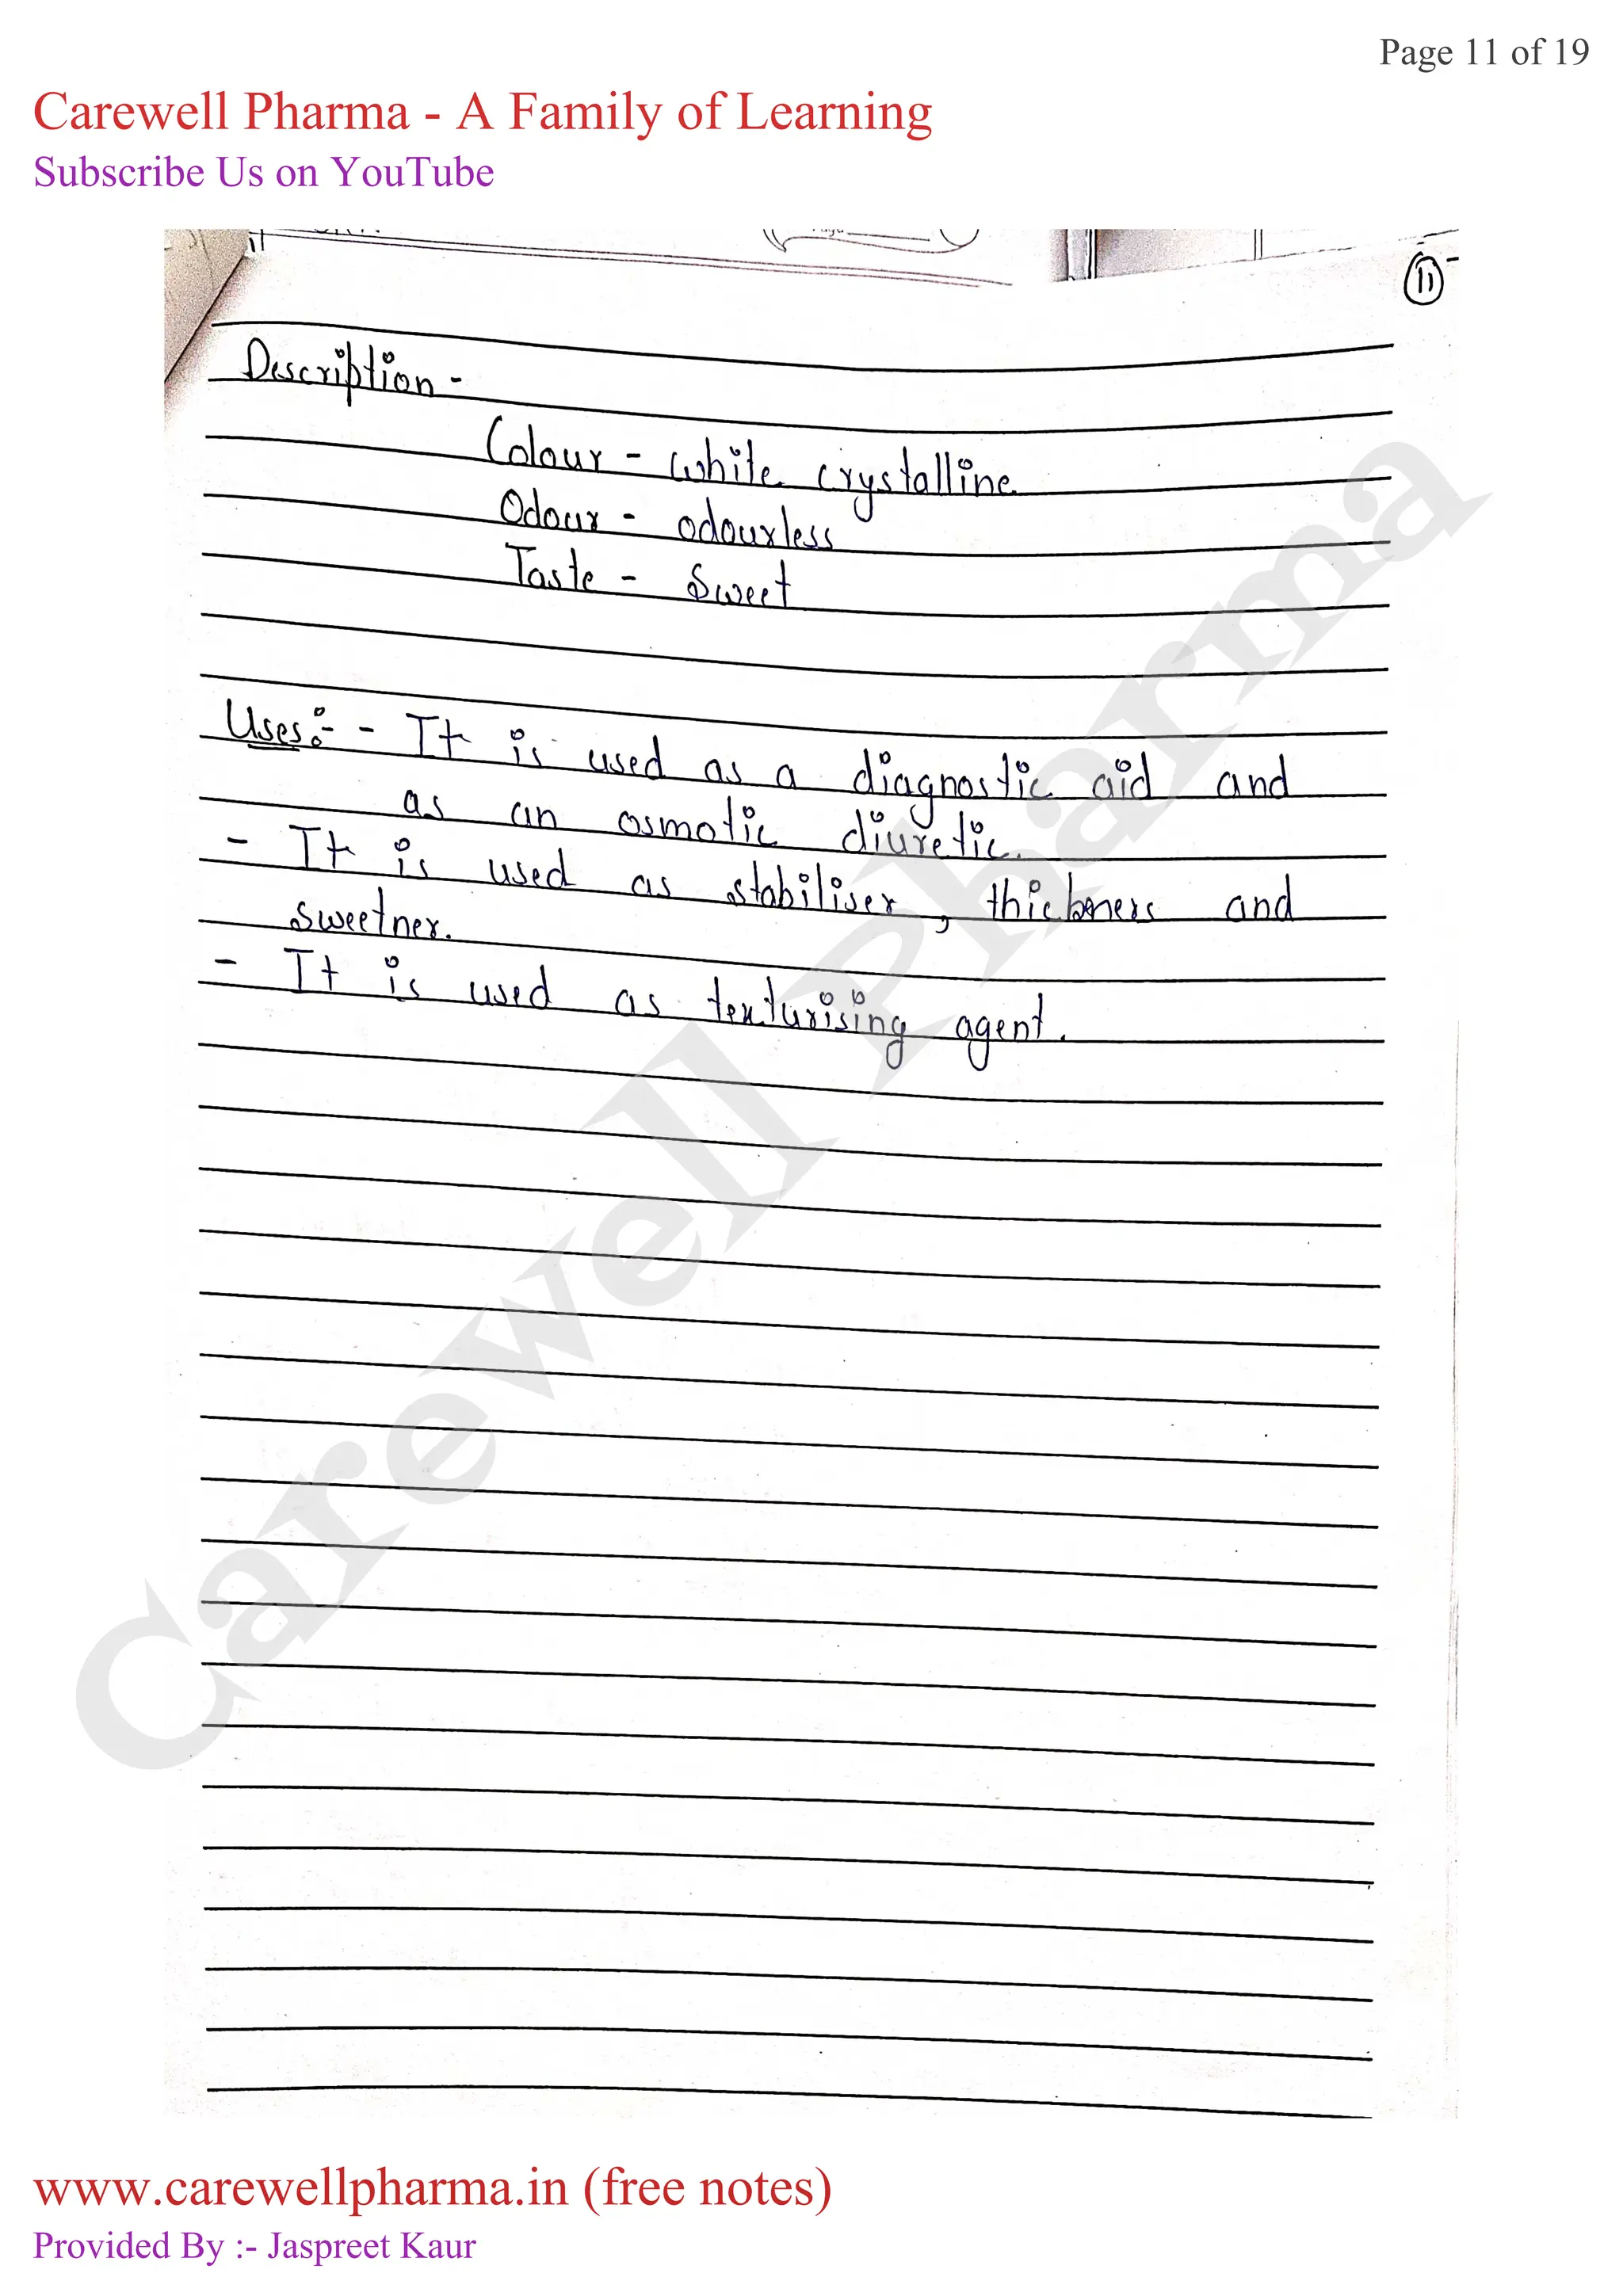 Page 11 of 19
Carewell Pharma - A Family of Learning
Subscribe Us on YouTube
11
Description -
Colour - white crystalline
Odour - odourless
Taste - Sweet
Uses:- - It is used as a diagnostic aid and
as an osmotic diuretic.
- It is used as stabiliser, thickness and
sweetner.
- It is used as texturising agent.
Carewell Pharma
www.carewellpharma.in (free notes)
Provided By :- Jaspreet Kaur